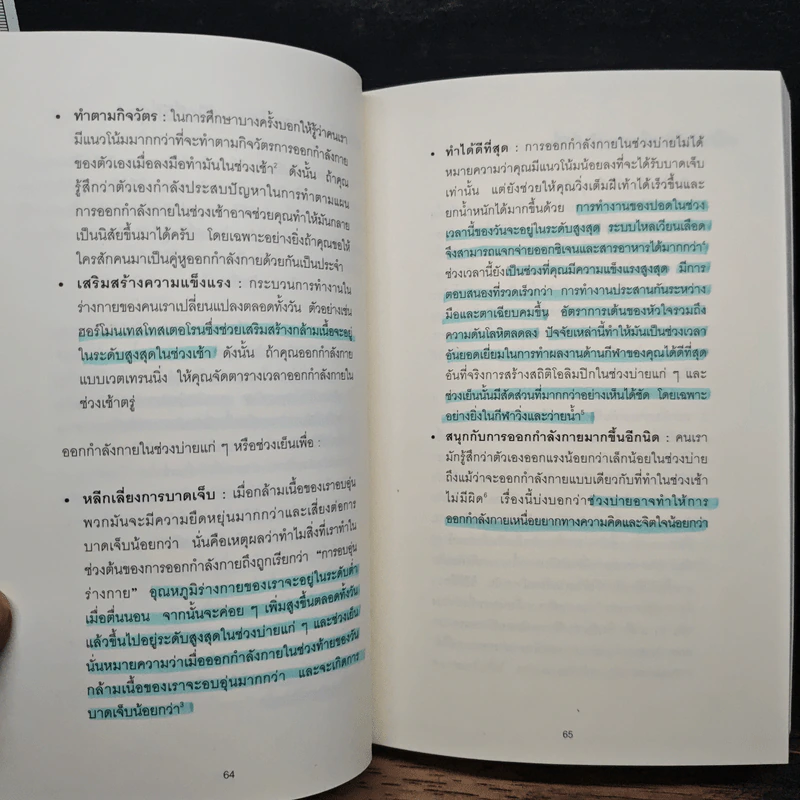 • ทำตามกิจวัตร : ในการศึกษาบางครั้งบอกให้รู้ว่าคนเรา
มีแนวโน้มมากกว่าที่จะทำตามกิจวัตรการออกกำลังกาย
ของตัวเองเมื่อลงมือทำมันในช่วงเช้า² ดังนั้น ถ้าคุณ
รู้สึกว่าตัวเองกำลังประสบปัญหาในการทำตามแผน
การออกกำลังกายในช่วงเช้าอาจช่วยคุณทำให้มันกลาย
เป็นนิสัยขึ้นมาได้ครับ โดยเฉพาะอย่างยิ่งถ้าคุณขอให้
ใครสักคนมาเป็นคู่หูออกกำลังกายด้วยกันเป็นประจำ
• เสริมสร้างความแข็งแรง : กระบวนการทำงานใน
ร่างกายของคนเราเปลี่ยนแปลงตลอดทั้งวัน ตัวอย่างเช่น
ฮอร์โมนเทสโทสเตอโรนซึ่งช่วยเสริมสร้างกล้ามเนื้อจะอยู่
ในระดับสูงสุดในช่วงเช้า ดังนั้น ถ้าคุณออกกำลังกาย
แบบเวตเทรนนิ่ง ให้คุณจัดตารางเวลาออกกำลังกายใน
ช่วงเช้าตรู่
ออกกำลังกายในช่วงบ่ายแก่ ๆ หรือช่วงเย็นเพื่อ :
• หลีกเลี่ยงการบาดเจ็บ : เมื่อกล้ามเนื้อของเราอบอุ่น
พวกมันจะมีความยืดหยุ่นมากกว่าและเสี่ยงต่อการ
บาดเจ็บน้อยกว่า นั่นคือเหตุผลว่าทำไมสิ่งที่เราทำใน
ช่วงต้นของการออกกำลังกายถึงถูกเรียกว่า “การอบอุ่น
ร่างกาย” อุณหภูมิร่างกายของเราจะอยู่ในระดับต่ำ
เมื่อตื่นนอน จากนั้นจะค่อย ๆ เพิ่มสูงขึ้นตลอดทั้งวัน
แล้วขึ้นไปอยู่ระดับสูงสุดในช่วงบ่ายแก่ ๆ และช่วงเย็น
นั่นหมายความว่าเมื่อออกกำลังกายในช่วงท้ายของวัน
กล้ามเนื้อของเราจะอบอุ่นมากกว่า และจะเกิดการ
บาดเจ็บน้อยกว่า³
64
• ทำได้ดีที่สุด : การออกกำลังกายในช่วงบ่ายไม่ได้
หมายความว่าคุณมีแนวโน้มน้อยลงที่จะได้รับบาดเจ็บ
เท่านั้น แต่ยังช่วยให้คุณวิ่งเต็มฝีเท้าได้เร็วขึ้นและ
ยกน้ำหนักได้มากขึ้นด้วย การทำงานของปอดในช่วง
เวลานี้ของวันจะอยู่ในระดับสูงสุด ระบบไหลเวียนเลือด
จึงสามารถแจกจ่ายออกซิเจนและสารอาหารได้มากกว่า⁴
ช่วงเวลานี้ยังเป็นช่วงที่คุณมีความแข็งแรงสูงสุด มีการ
ตอบสนองที่รวดเร็วกว่า การทำงานประสานกันระหว่าง
มือและตาเฉียบคมขึ้น อัตราการเต้นของหัวใจรวมถึง
ความดันโลหิตลดลง ปัจจัยเหล่านี้ทำให้มันเป็นช่วงเวลา
อันยอดเยี่ยมในการทำผลงานด้านกีฬาของคุณได้ดีที่สุด
อันที่จริงการสร้างสถิติโอลิมปิกในช่วงบ่ายแก่ ๆ และ
ช่วงเย็นนั้นมีสัดส่วนที่มากกว่าอย่างเห็นได้ชัด โดยเฉพาะ
อย่างยิ่งในกีฬาวิ่งและว่ายน้ำ⁵
• สนุกกับการออกกำลังกายมากขึ้นอีกนิด : คนเรา
มักรู้สึกว่าตัวเองออกแรงน้อยกว่าเล็กน้อยในช่วงบ่าย
ถึงแม้ว่าจะออกกำลังกายแบบเดียวกับที่ทำในช่วงเช้า
ไม่มีผิด⁶ เรื่องนี้บ่งบอกว่าช่วงบ่ายอาจทำให้การ
ออกกำลังกายเหนื่อยยากทางความคิดและจิตใจน้อยกว่า
65